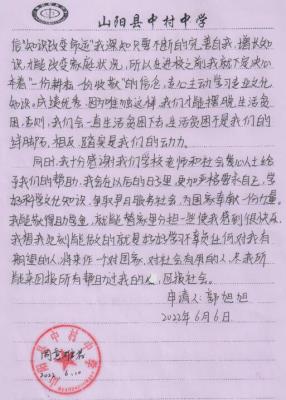 山阳县中村中学
信"知识改变命运"我深知只要不断的完善自我,增长知
识,才能改变家庭状况,所以在进校之前我就下定决心
本着"一份耕耘一份收获"的信念,专心主动学习专业文化
知识,成绩优秀,因为唯独这样,我们才能摆脱生活贫
困,否则,我们会一直生活贫困下去,生活贫困不是我们的
绊脚石,相反,踏实是我们的动力。
同时,我十分感谢我们学校老师和社会爱心人士给
予我们的帮助,我会在以后的日子里,更加严格要求自己,学
好科学文化知识,争取早日服务社会,为国家奉献一份力量。
我能获得助学金,就能替家里分担一些使我感到很快乐,
我想我此刻能做的就是好好学习不辜负任何对我有
期望的人,将来作一个对国家,对社会有用的人,尽我所
能来回报所有帮助过我的人,回报社会。
申请人:郭旭旭
2022年6月6日
山阳县中村中学
同意
2022.6.10